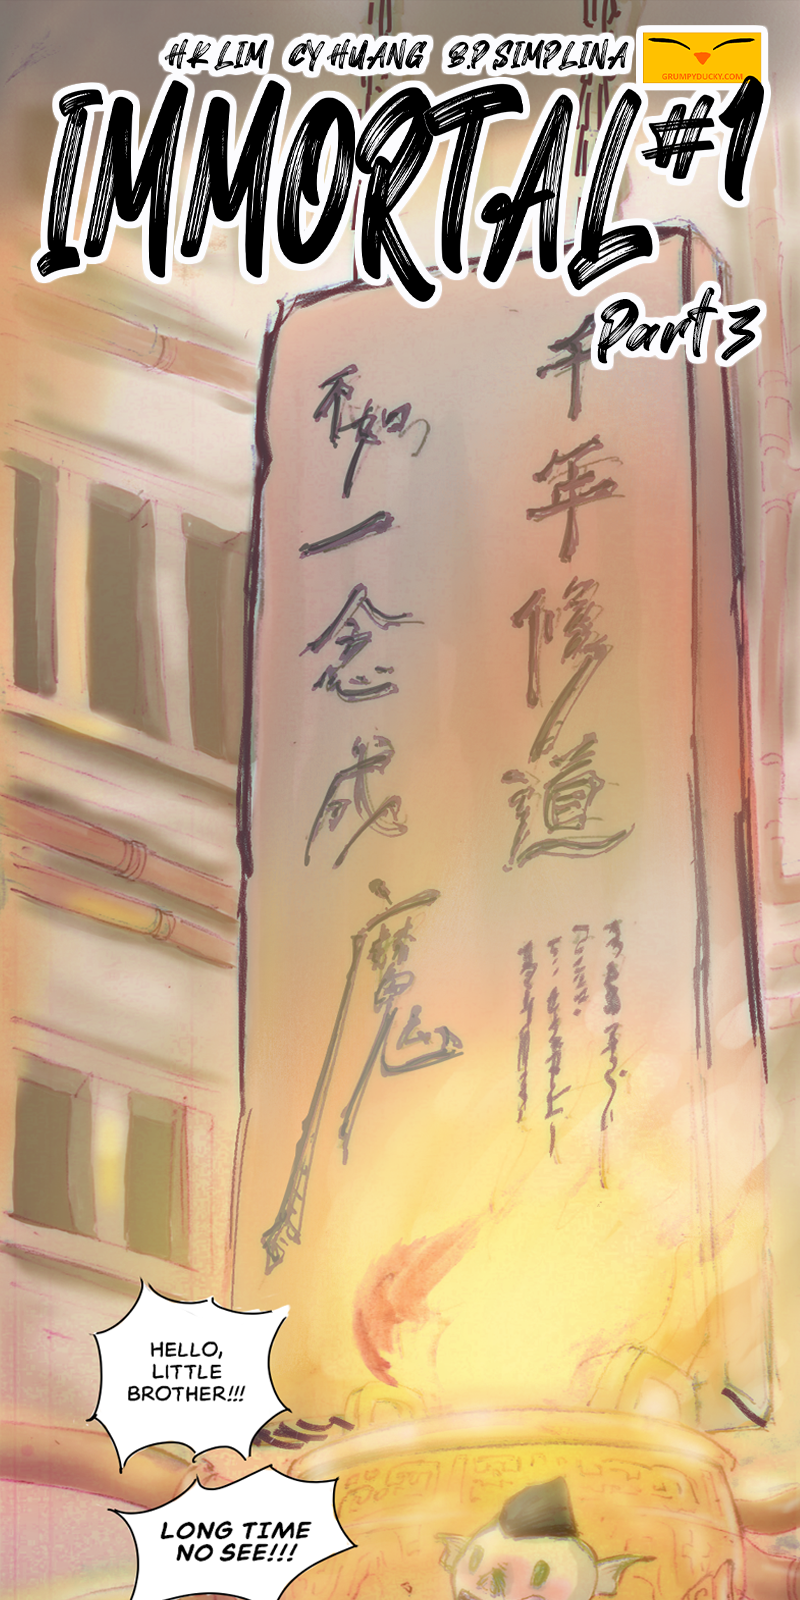 H.K LIM CY HUANG B.P SIMPLINA
GRUMPYDUCKY.COM
IMMORTAL #1
Part 3
千年修道
不如一念成魔
HELLO,
LITTLE
BROTHER!!!
LONG TIME
NO SEE!!!